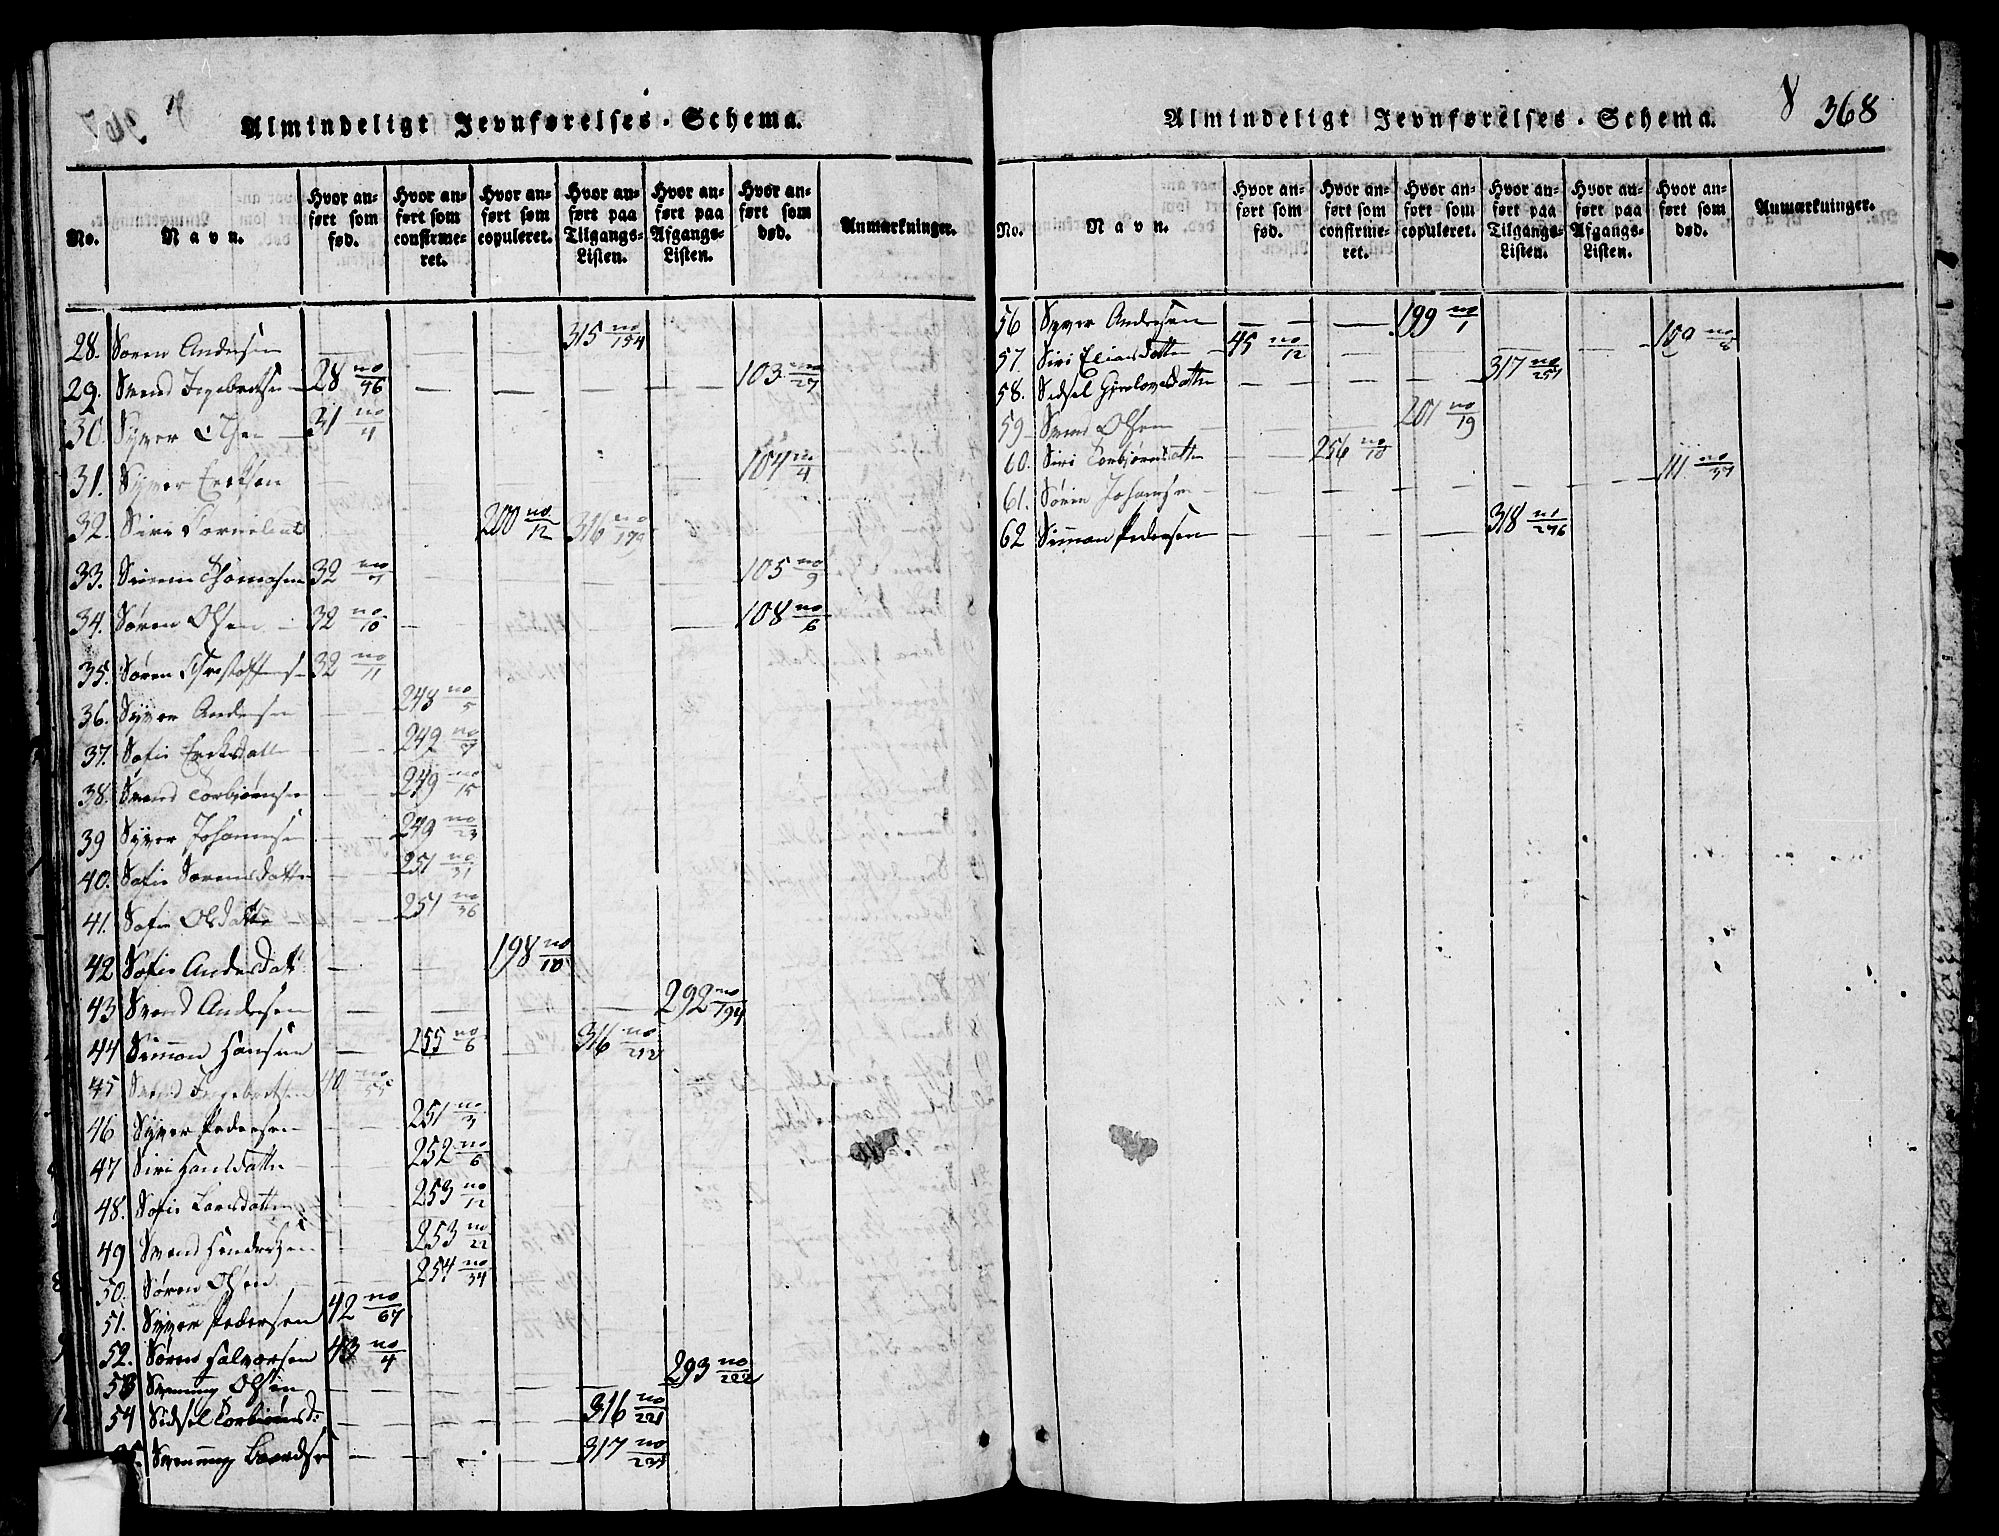 Almindeligt Jevnførelses-Schema.
No. Navn. Hvor anført som fød. Hvor anført som confirmeret. Hvor anført som copuleret. Hvor anført paa Tilgangs-Listen. Hvor anført paa Afgangs-Listen. Hvor anført som død. Anmærkninger.
28. Søren Andersen — — — 315 no/154
29. Svend Ingebretsen 28 no/46 — — — — 103 no/27
30. Syver Olsen 31 no/4
31. Syver Ericksen 104 no/4
32. Siri 200 no/12 316 no/179
33. Thomasen 32 no/7 105 no/9
34. Søren Olsen 32 no/10 — — 108 no/6
35. Søren 32 no/11
36. Syver Andersen — 248 no/5
37. Sofie Ericksdatter — 249 no/7
38. Svend Torbiørnsen — 249 no/15
39 Syver Johannesen — 249 no/23
40. Sofie Sørensdatter — 251 no/31
41. Sofie Olsdatter — 251 no/36
42 Sofie Andersdatter — — 198 no/10
43 Svend Andersen — — — — 292 no/194
44 Simon Hansen — 255 no/6 — 316 no/212
45 Svend Ingebretsen 40 no/55
46 Syver Pedersen — 251 no/3
47 Siri Hansdatter — 252 no/6
48. Sofie Larsdatter — 253 no/12
49 Svend — 253 no/22
50. Søren Olsen — 254 no/34
51. Syver Pedersen 42 no/67
52. Søren Halvorsen 43 no/4
53 Svenung Olsen — — — — 293 no/222
54 Sidsel Torbiørnsd: — — — 316 no/221
Svenung — — — 317 no/
Almindeligt Jevnførelses-Schema.
8 368
No. Navn. Hvor anført som fød. Hvor anført som confirmeret. Hvor anført som copuleret. Hvor anført paa Tilgangs-Listen. Hvor anført paa Afgangs-Listen. Hvor anført som død. Anmærkninger.
56 Syver Andersen — — 199 no/1
57. Siri Eliasdatter 45 no/12 — — — — 109 no/8
58. Sidsel — — — 317 no/257
59 Svend Olsen — — 201 no/19
60. Siri Torbjørnsdatter — 256 no/10
61. Søren Johannsen — — — — — 111 no/37
62 Simon Pedersen — — — 318 no/276